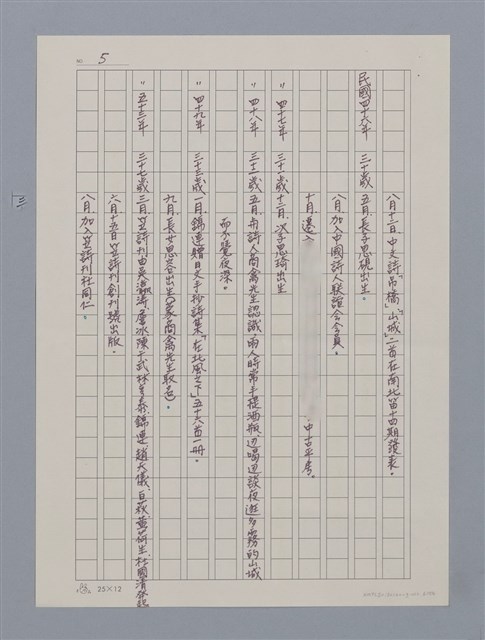 NO. 5
八月十二日 中文詩「吊橋」「山城」二首在南北笛十四期發表。
民國四十六年 三十歲 五月 長子思硯出生。
八月加入中國詩人聯誼會會員。
十月遷入 中古平房。
〃 四十七年 三十一歲 十二月 次子思琦出生
〃 四十八年 三十二歲 五月與詩人商禽先生認識,兩人時常手提酒瓶,边喝边談夜遊多霧的山城
而不覺夜深。
〃 四十九年 三十三歲 一月 錦連贈日文手抄詩集「在北風之下」五十六首一冊。
九月 長女思容出生,蒙商禽先生取名。
〃 五十三年 三十七歲 三月 笠詩刊由吳瀛濤 詹冰 陳千武 林亨泰 錦連 趙天儀 白萩 黃荷生 杜國清發起
六月十五日笠詩刊創刊號出版。
八月加入笠詩刊社同仁。
三
25×12